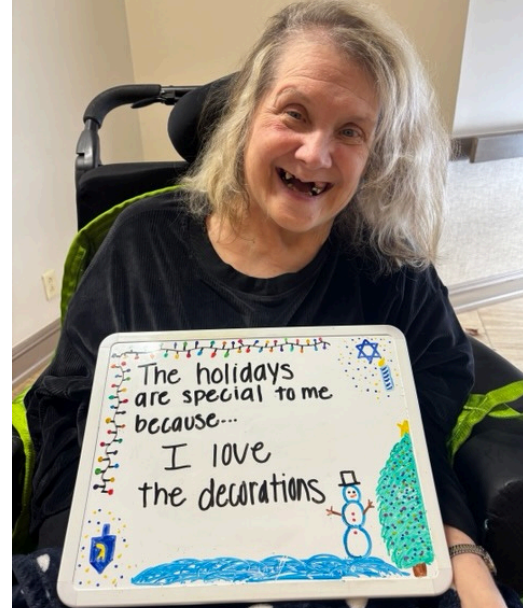 The holidays
are special to me
because...
I love
the decorations